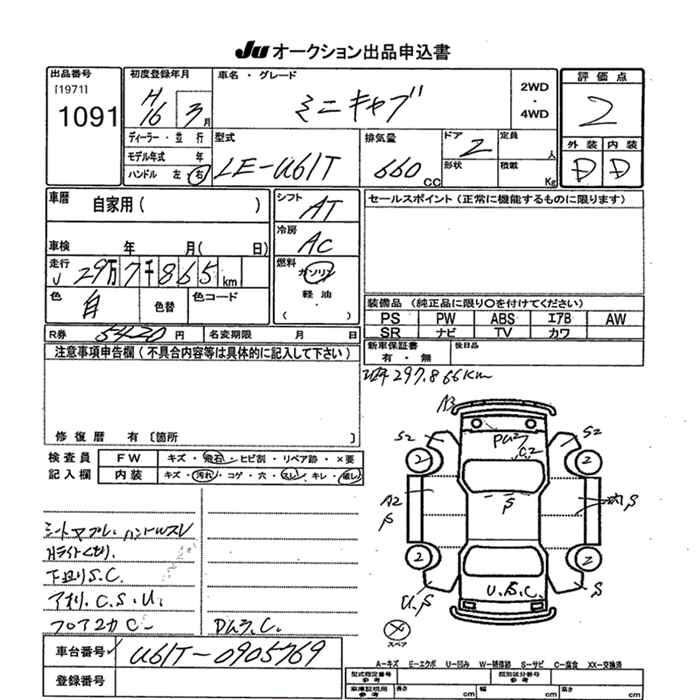 Ju オークション出品申込書
出品番号
[1971]
1091
初度登録年月
H16 3月
ディーラー・並行
モデル年式 年
ハンドル 左 右
車名・グレード
ミニキャブ
2WD
・
4WD
評価点
2
外装 内装
D D
型式
LE-U61T
排気量
660 CC
ドア
2
形状
定員
人
積載
Kg
車歴
自家用( )
車検 年 月( 日)
走行
29万7千865km
色
白
色替
色コード
シフト
AT
冷房
AC
燃料
ガソリン
・
軽油
( )
セールスポイント(正常に機能するものに限ります)
装備品(純正品に限り○を付けてください)
PS PW ABS エアB AW
SR ナビ TV カワ
R券 5420 円
名変期限 月 日
新車保証書
有・無
後日品
注意事項申告欄(不具合内容等は具体的に記入して下さい)
297,866Km
修復歴 有〔箇所 〕
検査員
記入欄
FW キズ・飛石・ヒビ割・リペア跡・×要
内装 キズ・汚れ・コゲ・穴・スレ・キレ・破レ
A3
S2
S2
2
2
C2
A2
S
2
2
S
U.S.C.
シートヤブレ.ハンドルスレ
Hライトくもり.
下廻りS.C.
アオリ.C.S.U.
フロア2カC-
スペア
車台番号
U61T-0905769
登録番号
A-キズ E-エクボ U-凹み W-補修跡 S-サビ C-腐食 XX-交換済
型式指定番号
参考
類別区分番号
参考
車庫証明用
参考
長さ cm 幅 cm 高さ cm